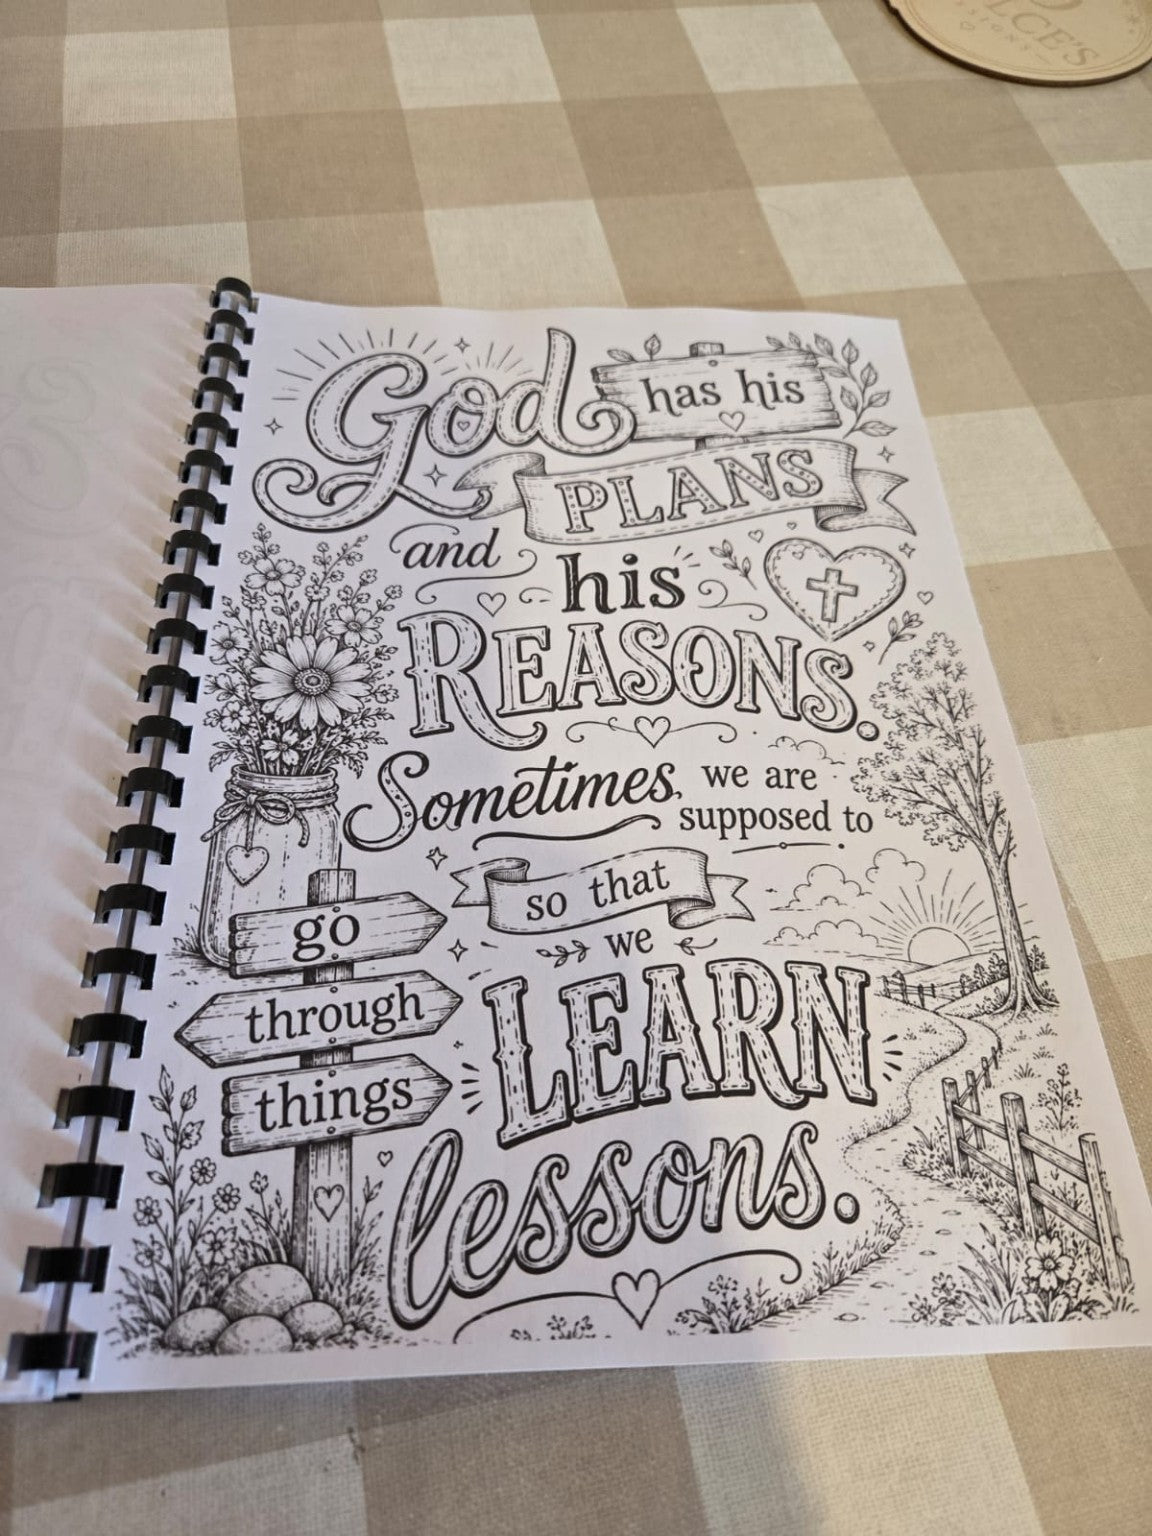 LCE'S
God has his
PLANS
and his
REASONS.
Sometimes, we are
supposed to
go
through
things
so that
we
LEARN
lessons.